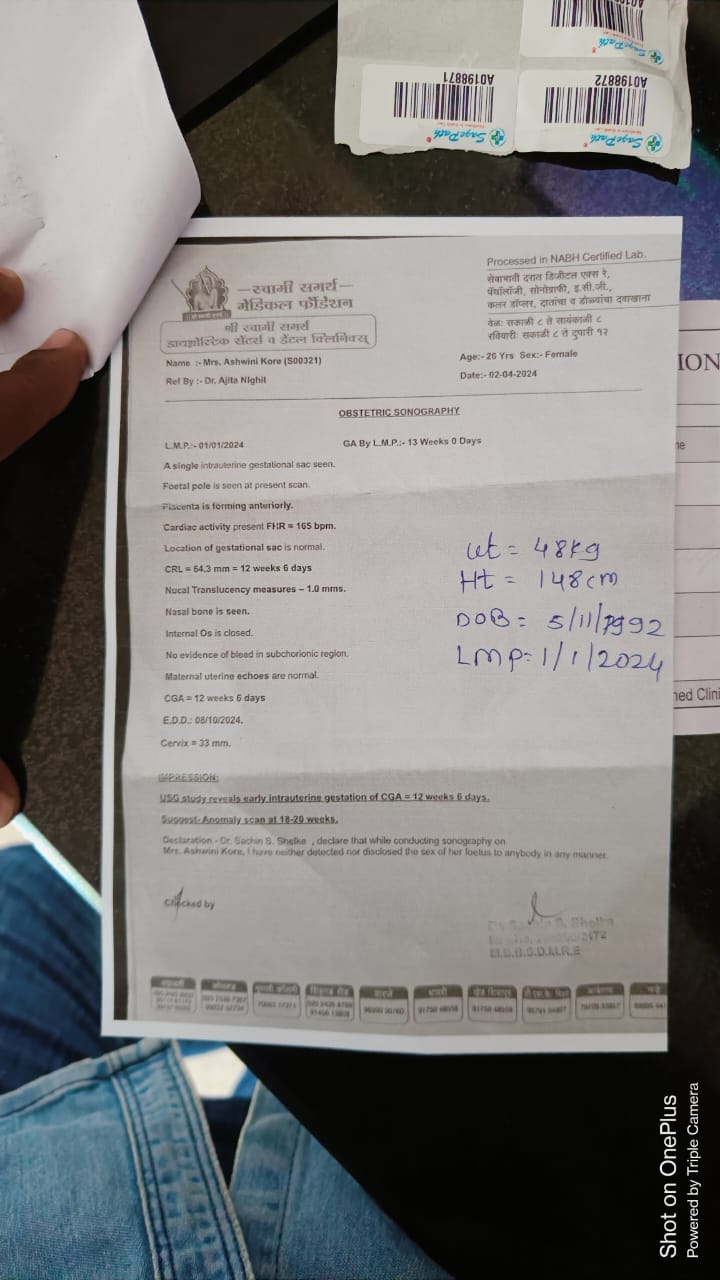 A0198871
A0198872
SagePath
SagePath
SagePath
Processed in NABH Certified Lab.
सेवाभावी दरात डिजीटल एक्स रे,
पॅथॉलॉजी, सोनोग्राफी, इ.सी.जी.,
कलर डॉप्लर, दातांचा व डोळ्यांचा दवाखाना
वेळ: सकाळी ८ ते सायंकाळी ८
रविवारी: सकाळी ८ ते दुपारी १२
–स्वामी समर्थ–
मेडिकल फौंडेशन
श्री स्वामी समर्थ
डायग्नोस्टिक सेंटर्स व डेंटल क्लिनिक्स्
Name :- Mrs. Ashwini Kore (S00321)
Age:- 26 Yrs Sex:- Female
Ref By :- Dr. Ajita Nighil
Date:- 02-04-2024
OBSTETRIC SONOGRAPHY
L.M.P.:- 01/01/2024 GA By L.M.P.:- 13 Weeks 0 Days
A single intrauterine gestational sac seen.
Foetal pole is seen at present scan.
Placenta is forming anteriorly.
Cardiac activity present FHR = 165 bpm.
Location of gestational sac is normal.
CRL = 64.3 mm = 12 weeks 6 days
Nucal Translucency measures – 1.0 mms.
Nasal bone is seen.
Internal Os is closed.
No evidence of bleed in subchorionic region.
Maternal uterine echoes are normal.
CGA = 12 weeks 6 days
E.D.D.: 08/10/2024.
Cervix = 33 mm.
wt = 48kg
Ht = 148cm
DOB = 5/11/1992
LMP = 1/1/2024
IMPRESSION:
USG study reveals early intrauterine gestation of CGA = 12 weeks 6 days.
Suggest- Anomaly scan at 18-20 weeks.
Declaration - Dr. Sachin B. Shelke , declare that while conducting sonography on
Mrs. Ashwini Kore, I have neither detected nor disclosed the sex of her foetus to anybody in any manner.
Checked by
Dr. Sachin B. Shelke
M.B.B.S.D.M.R.E
ION
ned Clini
Shot on OnePlus
Powered by Triple Camera